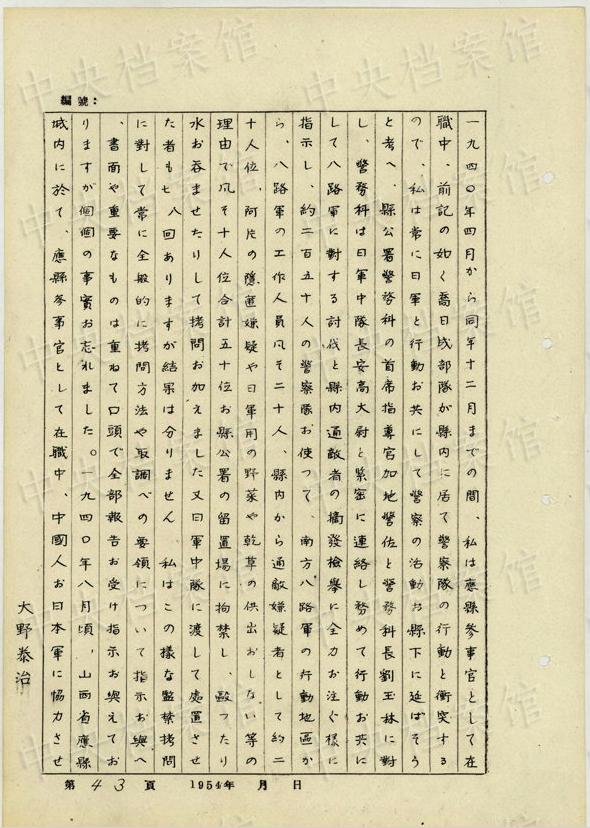 編號：
一九四〇年四月から同年十二月までの間、私は應縣參事官として在
職中、前記の如く喬日成部隊が縣内に居て警察隊の行動と衝突する
ので、私は常に日軍と行動お共にして警察の活動お縣下に延ばそう
と考へ、縣公署警務科の首席指導官加地警佐と警務科長劉玉林に對
し、警務科は日軍中隊長安高大尉と緊密に連絡し務めて行動お共に
して八路軍に對する討伐と縣内通敵者の摘發檢擧に全力お注ぐ樣に
指示し、約二百五十人の警察隊お使つて、南方八路軍の行動地區か
ら、八路軍の工作人員凡そ二十人、縣内から通敵嫌疑者として約二
十人位、阿片の隱匿嫌疑や日軍用の野菜や乾草の供出おしない等の
理由で凡そ十人位合計五十位お縣公署の留置場に拘禁し、毆つたり
水お呑ませたりして拷問お加えました又日軍中隊に渡して處置させ
た者も七、八回ありますが結果は分りません　私はこの樣な監禁拷問
に對して常に全般的に拷問方法や取調べの要領について指示お與へ
、書面や重要なものは重ねて口頭で全部報告お受け指示お與えてお
りますが個個の事實お忘れました。一九四〇年八月頃、山西省應縣
城内に於て、應縣參事官として在職中、中國人お日本軍に協力させ
大野泰治
第 43 頁　1954年　月　日
中央档案馆